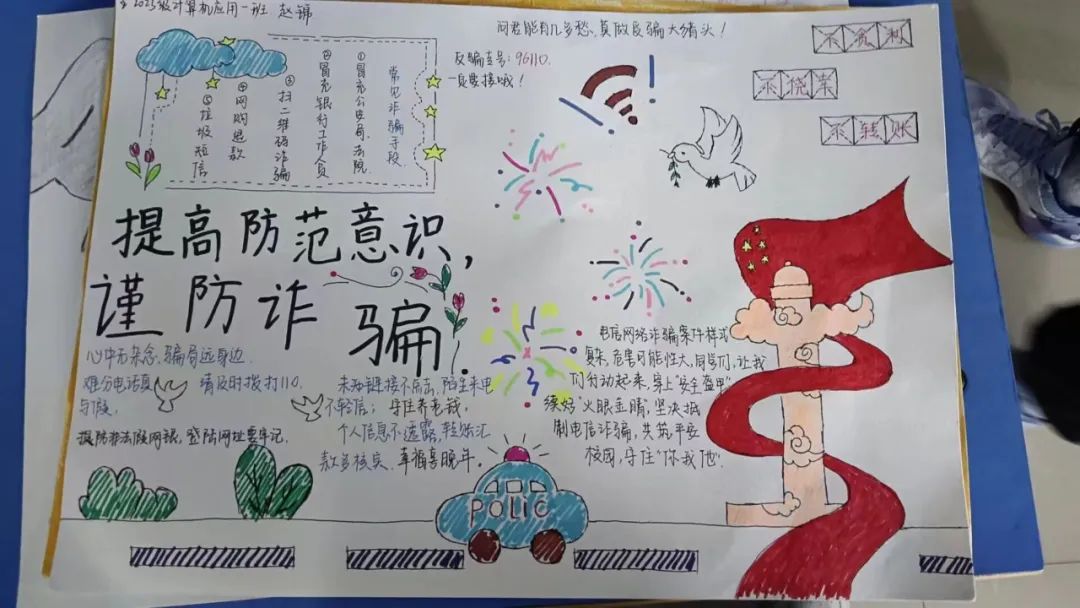 2023级计算机应用一班 赵锦
问君能有几多愁,莫做反骗大猪头!
反骗专号:96110.
一定要接哦!
不贪利
不侥幸
不转账
常见诈骗手段
①冒充公安局、法院
②冒充银行工作人员
③扫二维码诈骗
④网购退款
⑤垃圾短信
提高防范意识,
谨防诈骗.
心中无杂念,骗局远身边.
难分电话真与假,
请及时拨打110.
提防非法假网银,登陆网址要牢记.
未知链接不点击,陌生来电
不轻信;守住养老钱,
个人信息不透露,转账汇
款多核实、幸福享晚年。
电信网络诈骗案件样式
复杂,危害可能性大,同学们,让我
们行动起来,穿上"安全盔甲"
练好"火眼金睛",坚决抵
制电信诈骗,共筑平安
校园,守住"你我他".
POLIC